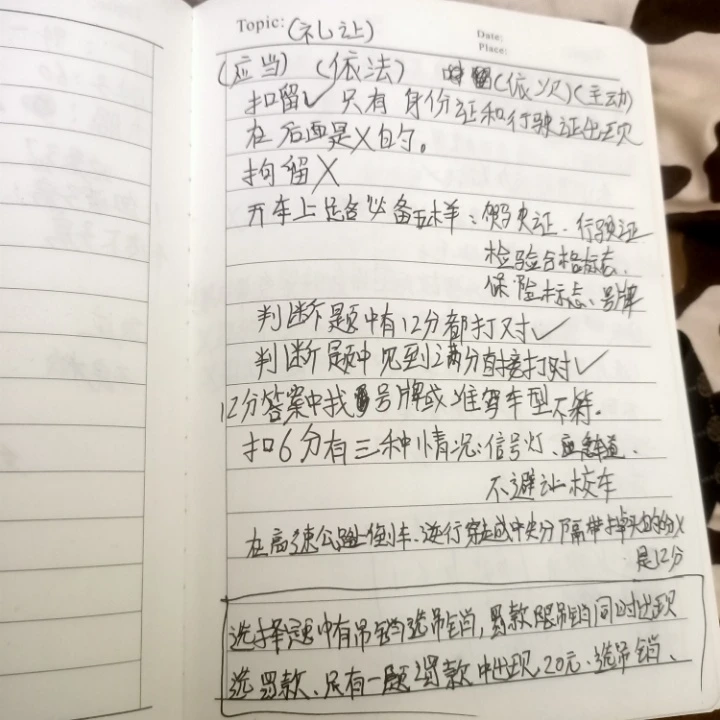 Topic: (礼让)
Date:
Place:
(应当) (依法) (依次)(主动)
扣留✓ 只有 身份证和行驶证出现
在后面是X的。
拘留X
开车上路必备五样:驾驶证、行驶证
检验合格标志、
保险标志、号牌
判断题中有12分都打对✓
判断题中见到2满分直接打对✓
12分答案中找号牌或准驾车型不符。
扣6分有三种情况:信号灯、应急车道、
不避让校车
在高速公路上倒车、逆行穿越中央分隔带掉头的扣分X
是12分
选择题中有吊销选吊销,罚款跟吊销同时出现
选罚款、只有一题罚款中出现20元、选吊销、